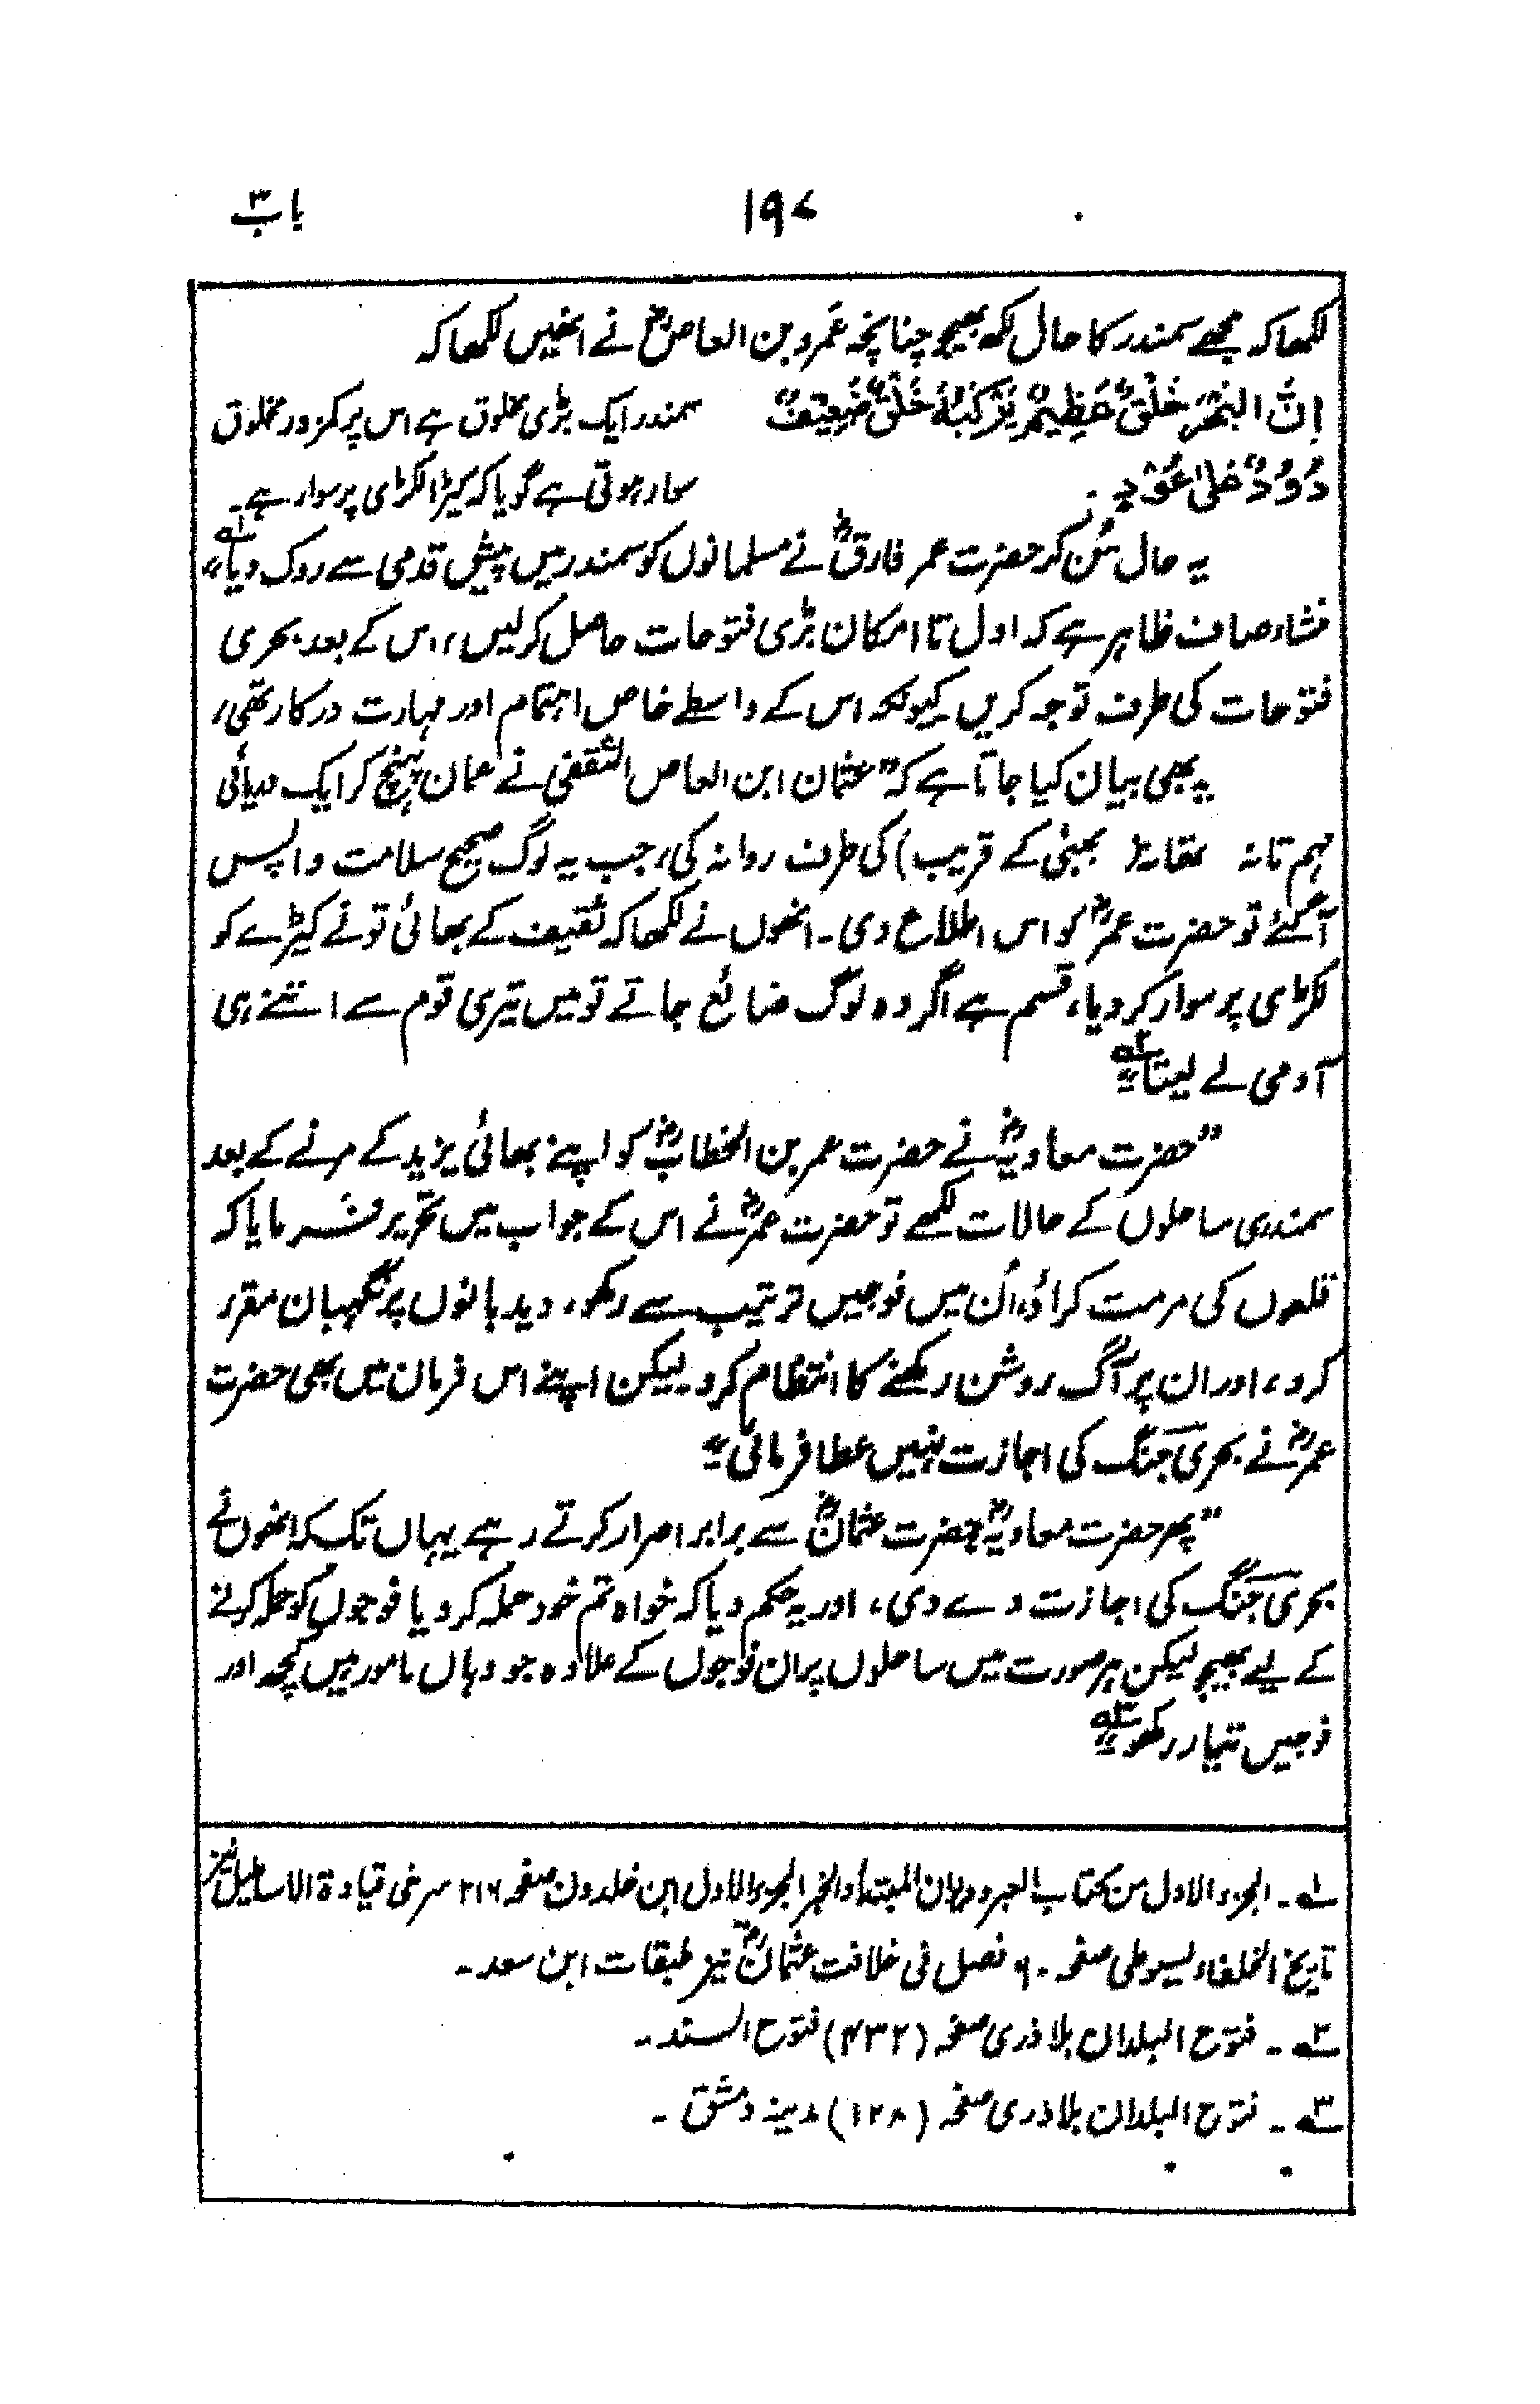 ۱۹۷ باب۳
لکھا کہ مجھے سمندر کا حال لکھ بھیجو چنانچہ عَمرو بن العاصؓ نے انھیں لکھا کہ
اِنَّ البَحْرَ خَلْقٌ عَظِیمٌ یَرْکَبُہٗ خَلْقٌ ضَعِیْفٌ سمندر ایک بڑی مخلوق ہے اس پر کمزور مخلوق
دُوْدٌ عَلیٰ عُوْدٍ۔ سوار ہوتی ہے گویا کہ کیڑا لکڑی پر سوار ہے۔
یہ حال سُن کر حضرت عمر فارقؓ نے مسلمانوں کو سمندر میں پیش قدمی سے روک دیا۱؎"
منشاء صاف ظاہر ہے کہ اول تا امکان بڑی فتوحات حاصل کرلیں، اس کے بعد بحری
فتوحات کی طرف توجہ کریں کیونکہ اس کے واسطے خاص اہتمام اور مہارت درکار تھی،
یہ بھی بیان کیا جاتا ہے کہ "عثمان ابن العاص الثقفی نے عمان پہنچ کر ایک دریائی
مہم تانہ تھانہ( بمبئی کے قریب) کی طرف روانہ کی، جب یہ لوگ صحیح سلامت واپس
آگئے تو حضرت عمرؓ کو اس اطلاع دی۔ انھوں نے لکھا کہ ثقیف کے بھائی تو نے کیڑے کو
لکڑی پر سوار کر دیا، قسم ہے اگر وہ لوگ ضائع جاتے تو میں تیری قوم سے اتنے ہی
آدمی لے لیتا۲؎"
"حضرت معاویہؓ نے حضرت عمر بن الخطابؓ کو اپنے بھائی یزید کے مرنے کے بعد
سمندری ساحلوں کے حالات لکھے تو حضرت عمرؓ نے اس کے جواب میں تحریر فرمایا کہ
قلعوں کی مرمت کراؤ، اُن میں فوجیں ترتیب سے رکھو، دیدبانوں پر نگہبان مقرر
کرو، اور ان پر آگ روشن رکھنے کا انتظام کرو۔ لیکن اپنے اس فرمان میں بھی حضرت
عمرؓ نے بحری جنگ کی اجازت نہیں عطا فرمائی"
"پھر حضرت معاویہؓ حضرت عثمانؓ سے برابر اصرار کرتے رہے یہاں تک کہ انھوں نے
بحری جنگ کی اجازت دے دی، اور یہ حکم دیا کہ خواہ تم خود حملہ کرو یا فوجوں کو حملہ کرنے
کے لیے بھیجو لیکن ہر صورت میں ساحلوں پر ان فوجوں کے علاوہ جو وہاں مامور ہیں کچھ اور
فوجیں تیار رکھو۳؎"
۱؎۔ الجزء الاول من کتاب العبر ودیوان المبتدأ والخبر الجزء الاول ابن خلدون صفحہ ۲۱۶ سرخی قیادۃ الاساطیل نیز
تاریخ الخلفاء لسیوطی صفحہ ۶۰ فصل فی خلافت عثمانؓ نیز طبقات ابن سعد۔
۲؎۔ فتوح البلدان بلاذری صفحہ (۴۳۲) فتوح السند۔
۳؎۔ فتوح البلدان بلاذری صفحہ (۱۲۸) مدینہ دمشق۔